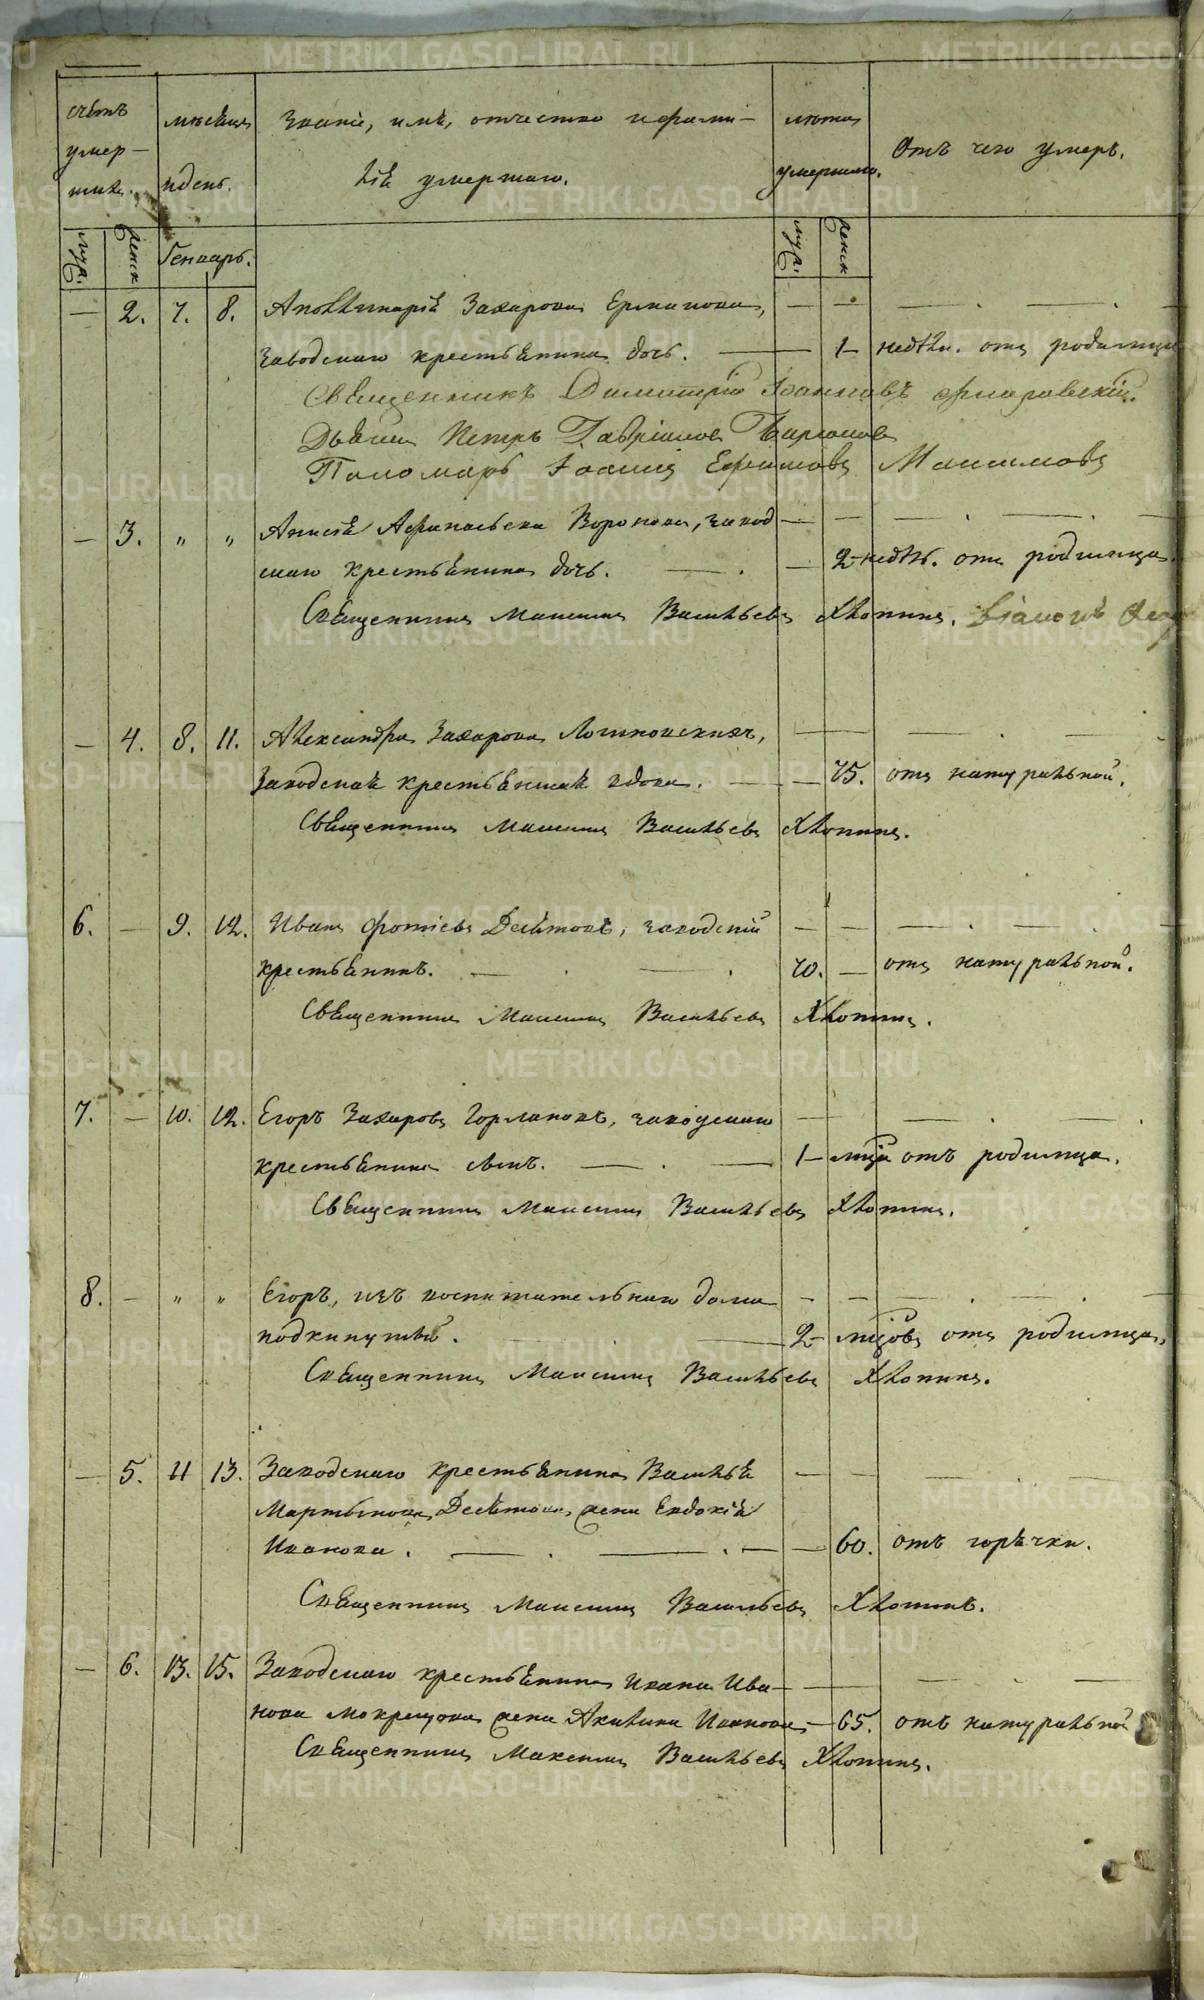 METRIKI.GASO-URAL.RU
счетъ умер-шихъ. мѣсѣцъ и день. Званіе, имѣ, отчество и фами- лѣта умершаго. Отъ чего умеръ.
лія умершаго.
муж. женск Генварь. муж. женск
— 2. 7. 8. Аполлинарія Захарова Ермакова, — —
заводскаго крестьянина дочь. — 1 — недѣли. отъ родимца
Священникъ Димитрій Іоанновъ Флоровскій.
Дьяконъ Петръ Гавріиловъ
Пономарь Іоаннъ Ефимовъ Максимовъ
— 3. „ „ Анисія Афанасьева Воронова, завод — —
скаго крестьянина дочь. — . — 2 — недѣль. отъ родимца.
Священникъ Максимъ Васильевъ Хлопинъ.
— 4. 8. 11. Александра Захарова Логиновскихъ, —
заводская крестьянская вдова. — — 75. отъ натуральной.
Священникъ Максимъ Васильевъ Хлопинъ.
6. — 9. 12. Иванъ Фотіевъ Десятовъ, заводскій — —
крестьянинъ. — . — . 70. — отъ натуральной.
Священникъ Максимъ Васильевъ Хлопинъ.
7. — 10. 12. Егоръ Захаровъ Горлановъ, заводскаго —
крестьянина сынъ. — . — 1 — мца отъ родимца.
Священникъ Максимъ Васильевъ Хлопинъ.
8. — „ „ Егоръ, изъ воспитательнаго дома — —
подкинутый. — 2 — мцовъ отъ родимца.
Священникъ Максимъ Васильевъ Хлопинъ.
— 5. 11 13. Заводскаго крестьянина Василья — —
Мартынова Десятова жена Евдокія
Иванова. — . — . — — 60. отъ горячки.
Священникъ Максимъ Васильевъ Хлопинъ.
— 6. 13. 15. Заводскаго крестьянина Ивана Ива- —
нова Мокрецова жена Акилина Иванова — 65. отъ натуральной
Священникъ Максимъ Васильевъ Хлопинъ.